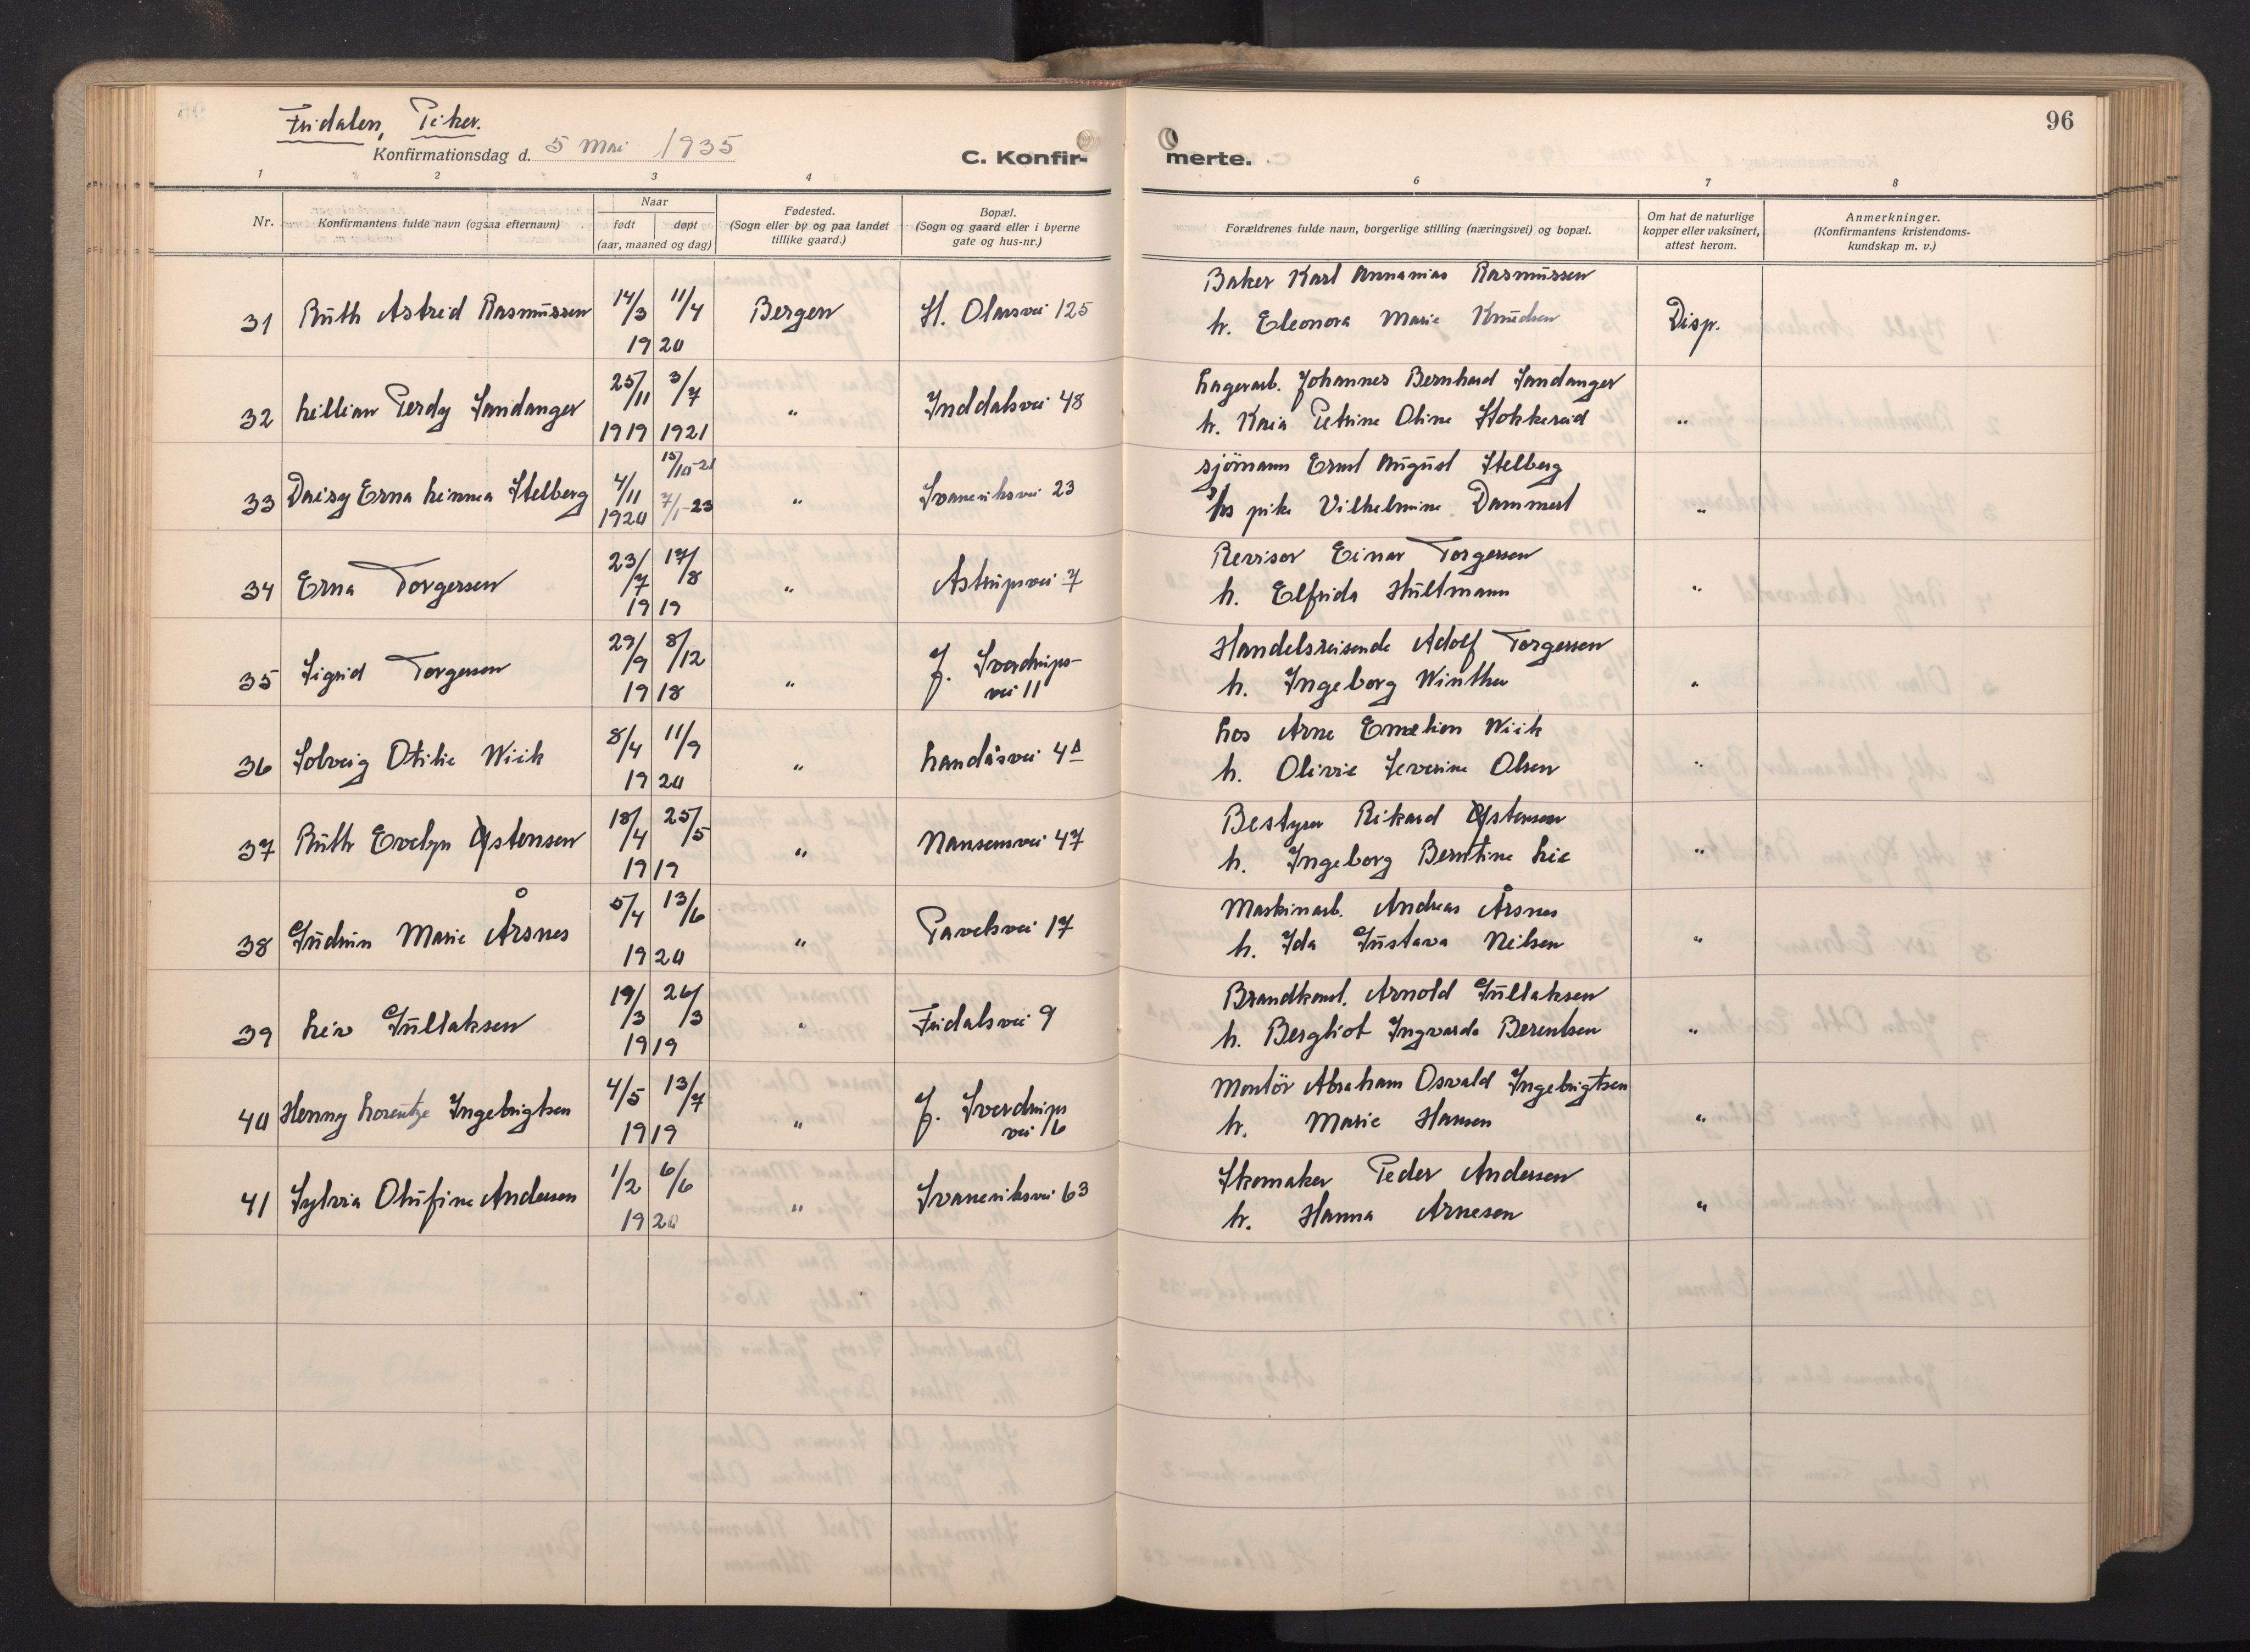 Fridalen, Piker.
Konfirmationsdag d. 5 Mai 1935
C. Konfirmerte.
96
1 2 3 4 6 7 8
Nr.
Konfirmantens fulde navn (ogsaa efternavn)
Naar
født døpt
(aar, maaned og dag)
Fødested.
(Sogn eller by og paa landet
tillike gaard.)
Bopæl.
(Sogn og gaard eller i byerne
gate og hus-nr.)
Forældrenes fulde navn, borgerlige stilling (næringsvei) og bopæl.
Om hat de naturlige
kopper eller vaksinert,
attest herom.
Anmerkninger.
(Konfirmantens kristendoms-
kundskap m. v.)
Baker Karl Annanias Rasmussen
31 Ruth Astrid Rasmussen 14/3 11/4 Bergen St. Olavsvei 125 h. Eleonora Marie Knudsen Disp.
1920
25/11 3/7 Lagerarb. Johannes Bernhard Sandanger
32 Lillian Gerdy Sandanger " Inddalsvei 48 h. Kaia Petrine Oline Stokkereid "
1919 1921
15/10-21 sjömann Ernst August Stelberg
33 Daisy Erna Linnea Stelberg 4/11 7/1-23 " Svaneviksvei 23 pike Vilhelmine Dammert "
1920
23/7 17/8 Revisor Einar Torgersen
34 Erna Torgersen " Astrupsvei 7 h. Elfrida Hultmann "
1919
29/9 8/12 Handelsreisende Adolf Torgersen
35 Sigrid Torgersen " J. Sverdrups-
vei 11 h. Ingeborg Winther "
1918
8/4 11/9 Los Arne Emelion Wiik
36 Solveig Otilie Wiik " Landåsvei 4A h. Olivie Severine Olsen "
1920
18/4 25/5 Bestyrer Rikard Østensen
37 Ruth Evelyn Østensen " Nansensvei 47 h. Ingeborg Berntine Lie "
1919
5/4 13/6 Maskinarb. Andreas Årsnes
38 Gudrun Marie Årsnes " Pavelsvei 17 h. Ida Gustava Nilsen "
1920
19/3 26/3 Brandkonst. Arnold Gullaksen
39 Liv Gullaksen " Fridalsvei 9 h. Bergliot Ingvarda Berentsen "
1919
4/5 13/7 Montör Abraham Osvald Ingebrigtsen
40 Henny Lorentze Ingebrigtsen " J. Sverdrups
vei 16 h. Marie Hansen "
1919
1/2 6/6 Skomaker Peder Andersen
41 Sylvia Olufine Andersen " Svaneviksvei 63 h. Hanna Arnesen "
1920